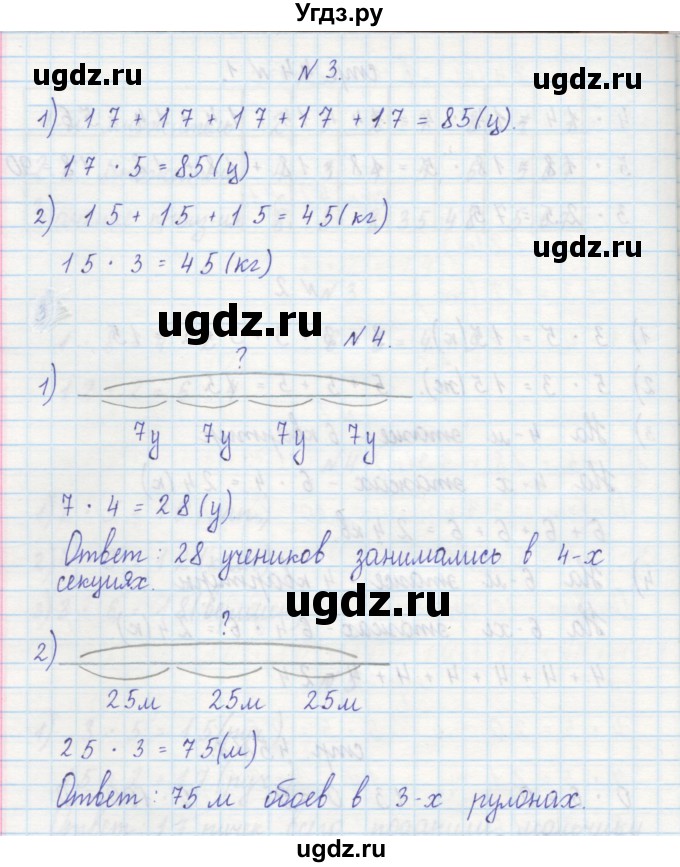 Угдз.ру
ugdz.ru ugdz.ru
№ 3.
1) 17 + 17 + 17 + 17 + 17 = 85(ц).
17 · 5 = 85(ц)
ugdz.ru
2) 15 + 15 + 15 = 45(кг)
15 · 3 = 45(кг)
ugdz.ru
ugdz.ru
№ 4.
?
1)
7у 7у 7у 7у
7 · 4 = 28(у)
Ответ: 28 учеников занимались в 4-х
секциях.
ugdz.ru
?
2)
25м 25м 25м
25 · 3 = 75(м)
Ответ: 75 м обоев в 3-х рулонах.
ugdz.ru